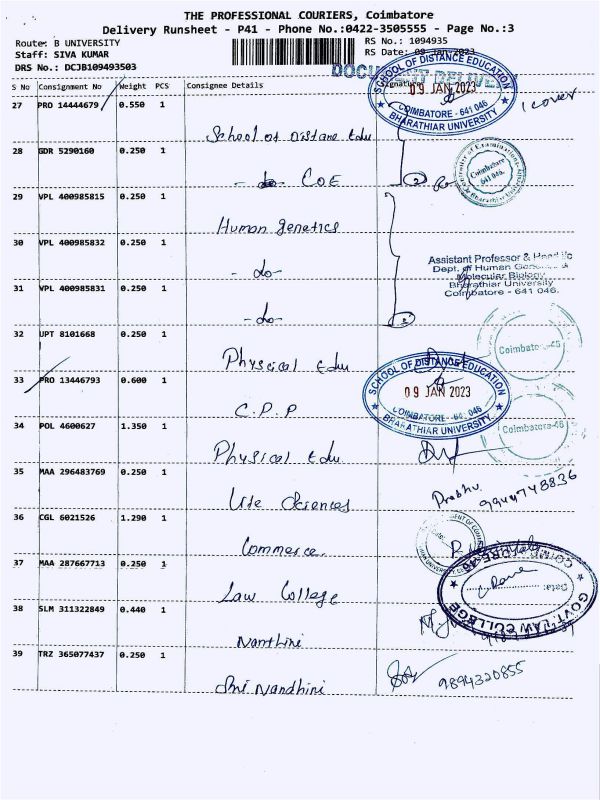 THE PROFESSIONAL COURIERS, Coimbatore
Delivery Runsheet - P41 - Phone No.:0422-3505555 - Page No.:3
Route: B UNIVERSITY
RS No.: 1094935
Staff: SIVA KUMAR
RS Date: 09 Jan 2023
DRS No.: DCJB109493503
S No Consignment No Weight PCS Consignee Details Signature
SCHOOL OF DISTANCE EDUCATION
09 JAN 2023
COIMBATORE - 641 046
BHARATHIAR UNIVERSITY
1 cover
27 PRO 14444679 0.550 1
School of Distane Edu
28 GDR 5290160 0.250 1
- do - COE
Coimbatore
641 046.
29 VPL 400985815 0.250 1
Human genetics
30 VPL 400985832 0.250 1
- do -
Assistant Professor &
Dept. of Human
Molecular Biology
Bharathiar University
Coimbatore - 641 046.
31 VPL 400985831 0.250 1
- do -
32 UPT 8101668 0.250 1
Physical Edu
Coimbatore-46
33 PRO 13446793 0.600 1
C.P.P
SCHOOL OF DISTANCE EDUCATION
09 JAN 2023
COIMBATORE - 641 046
BHARATHIAR UNIVERSITY
34 POL 4600627 1.350 1
Physical Edu
Coimbatore-46
35 MAA 296483769 0.250 1
Life Sciences
Prabhu
36 CGL 6021526 1.290 1
Commerce
37 MAA 287667713 0.250 1
Law College
Date:
GOVT LAW COLLEGE
38 SLM 311322849 0.440 1
Nanthini
39 TRZ 365077437 0.250 1
Sri Nandhini
9894320855